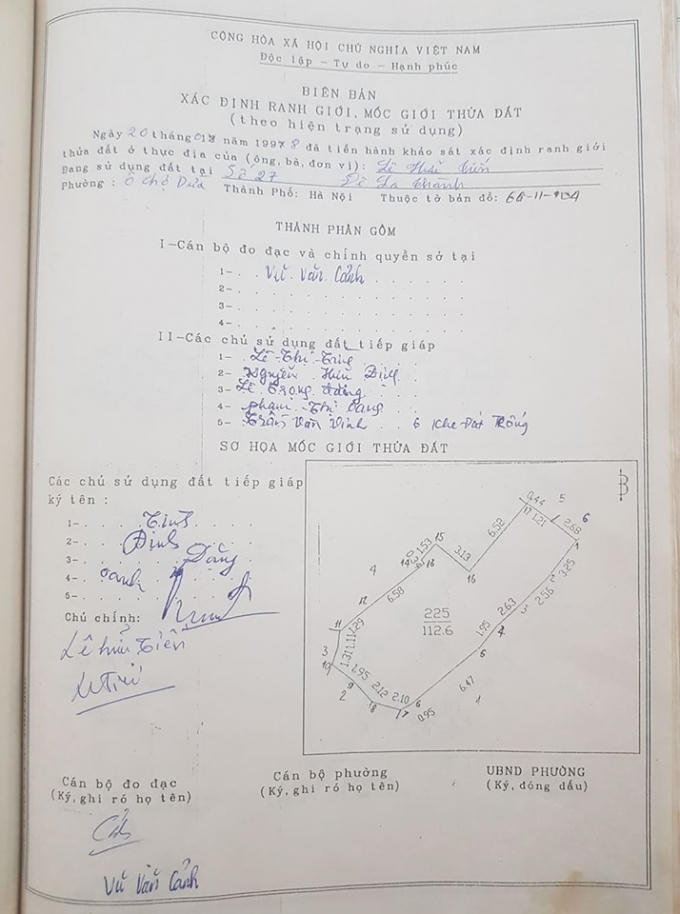 CỘNG HÒA XÃ HỘI CHỦ NGHĨA VIỆT NAM
Độc lập - Tự do - Hạnh phúc
BIÊN BẢN
XÁC ĐỊNH RANH GIỚI, MỐC GIỚI THỬA ĐẤT
(theo hiện trạng sử dụng)
Ngày 20 tháng 01 năm 1998 đã tiến hành khảo sát xác định ranh giới
thửa đất ở thực địa của (ông, bà, đơn vị): Lê Hữu Tiến
Đang sử dụng đất tại Số 27 Đê La Thành
Phường : Ô Chợ Dừa Thành Phố: Hà Nội Thuộc tờ bản đồ:
THÀNH PHẦN GỒM
I-Cán bộ đo đạc và chính quyền sở tại
1- Vũ Văn Cảnh
2-
3-
4-
II-Các chủ sử dụng đất tiếp giáp
1- Lê Thị
2- Nguyễn Hữu Định
3- Lê Trọng
4- Phạm Thị Oanh
5- Trần Văn Vinh 6 Khe Đất Trống
SƠ HỌA MỐC GIỚI THỬA ĐẤT
Các chủ sử dụng đất tiếp giáp
ký tên :
1-
2- Định
3-
4- Oanh
5-
Chủ chính:
Lê Hữu Tiến
B
0.44 5
17 1.21 2.68 6
6.52 1
15 1.53 3.13 16 3.25
14 13 2
4 6.58 2.56
12 225 2.63 3
112.6 1.95 4
11 1.29 5
1.11
3 1.31
10 1.95 6.47 1
9 2.12 2.10 6
2 8 7 0.95
Cán bộ đo đạc
(Ký, ghi rõ họ tên)
Cán bộ phường
(Ký, ghi rõ họ tên)
UBND PHƯỜNG
(Ký, đóng dấu)
Vũ Văn Cảnh